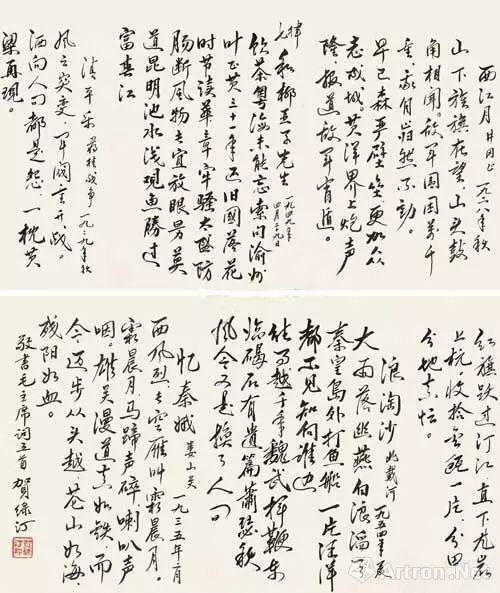 西江月 井冈山 一九二八年秋
山下旌旗在望,山头鼓
角相闻。敌军围困万千
重,我自岿然不动。
早已森严壁垒,更加众
志成城。黄洋界上炮声
隆,报道敌军宵遁。
七律 和柳亚子先生 一九四九年四月二十九日
饮茶粤海未能忘索句渝州
叶正黄三十一年还旧国落花
时节读华章牢骚太盛防
肠断风物长宜放眼量莫
道昆明池水浅观鱼胜过
富春江
清平乐 蒋桂战争 一九二九年秋
风云突变,军阀重开战。
洒向人间都是怨,一枕黄
粱再现。
红旗跃过汀江,直下龙岩
上杭。收拾金瓯一片,分田
分地真忙。
浪淘沙 北戴河 一九五四年夏
大雨落幽燕白浪滔天
秦皇岛外打鱼船一片汪洋
都不见知向谁边
往事越千年魏武挥鞭东
临碣石有遗篇萧瑟秋
风今又是换了人间
忆秦娥 娄山关 一九三五年二月
西风烈,长空雁叫霜晨月。
霜晨月,马蹄声碎,喇叭声
咽。雄关漫道真如铁,而
今迈步从头越。苍山如海,
残阳如血。
敬书毛主席词五首 贺绿汀
Artron.Net